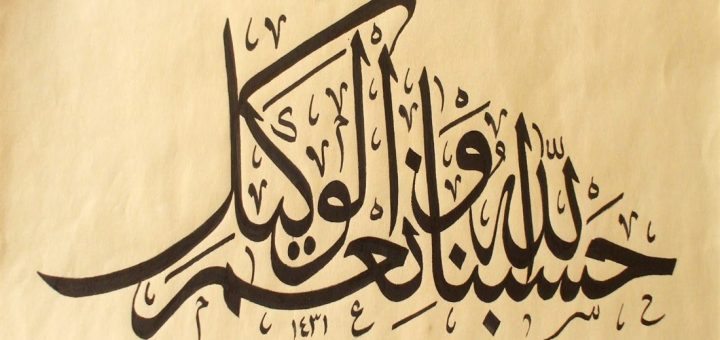 حَسْبُنَا اللّٰهُ وَنِعْمَ الْوَكِيل
١٤٣١